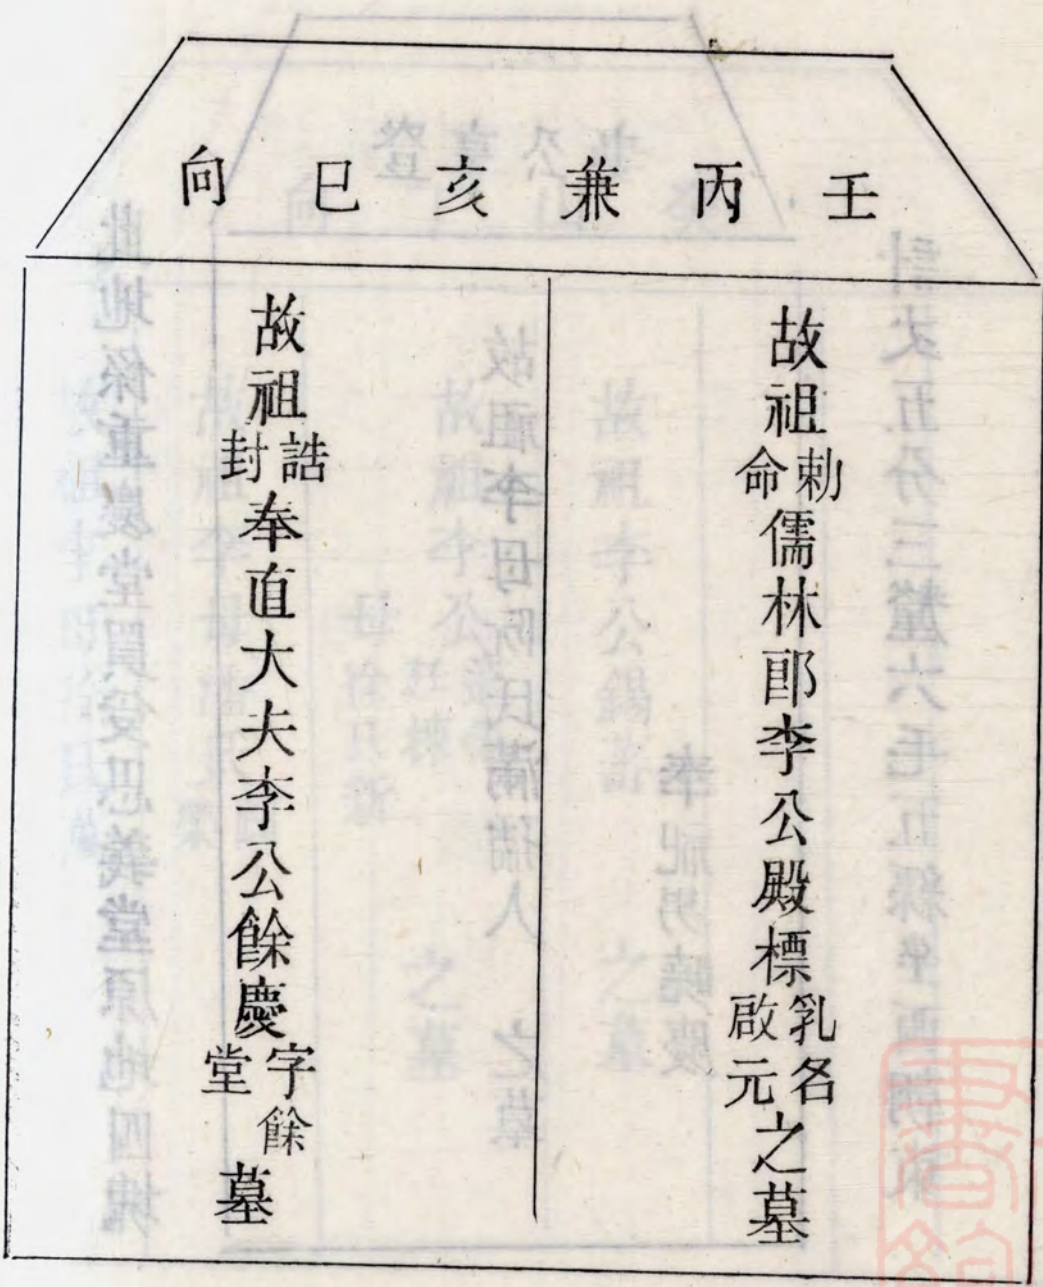 壬丙兼亥巳向
故祖勅命儒林郎李公殿標乳名啟元之墓
故祖誥封奉直大夫李公餘慶字餘堂墓